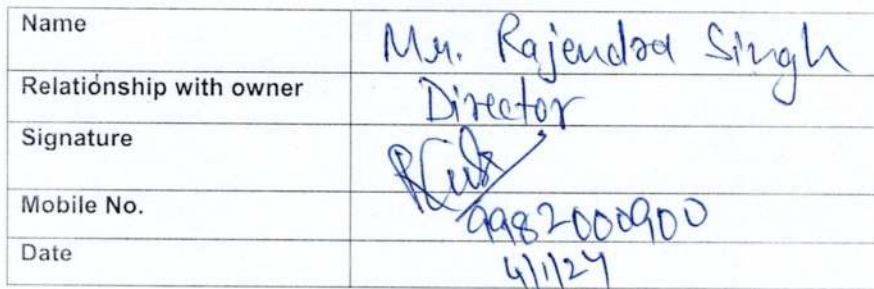 Name Mr. Rajendra Singh
Relationship with owner Director
Signature
Mobile No. 9982000900
Date 4/1/24